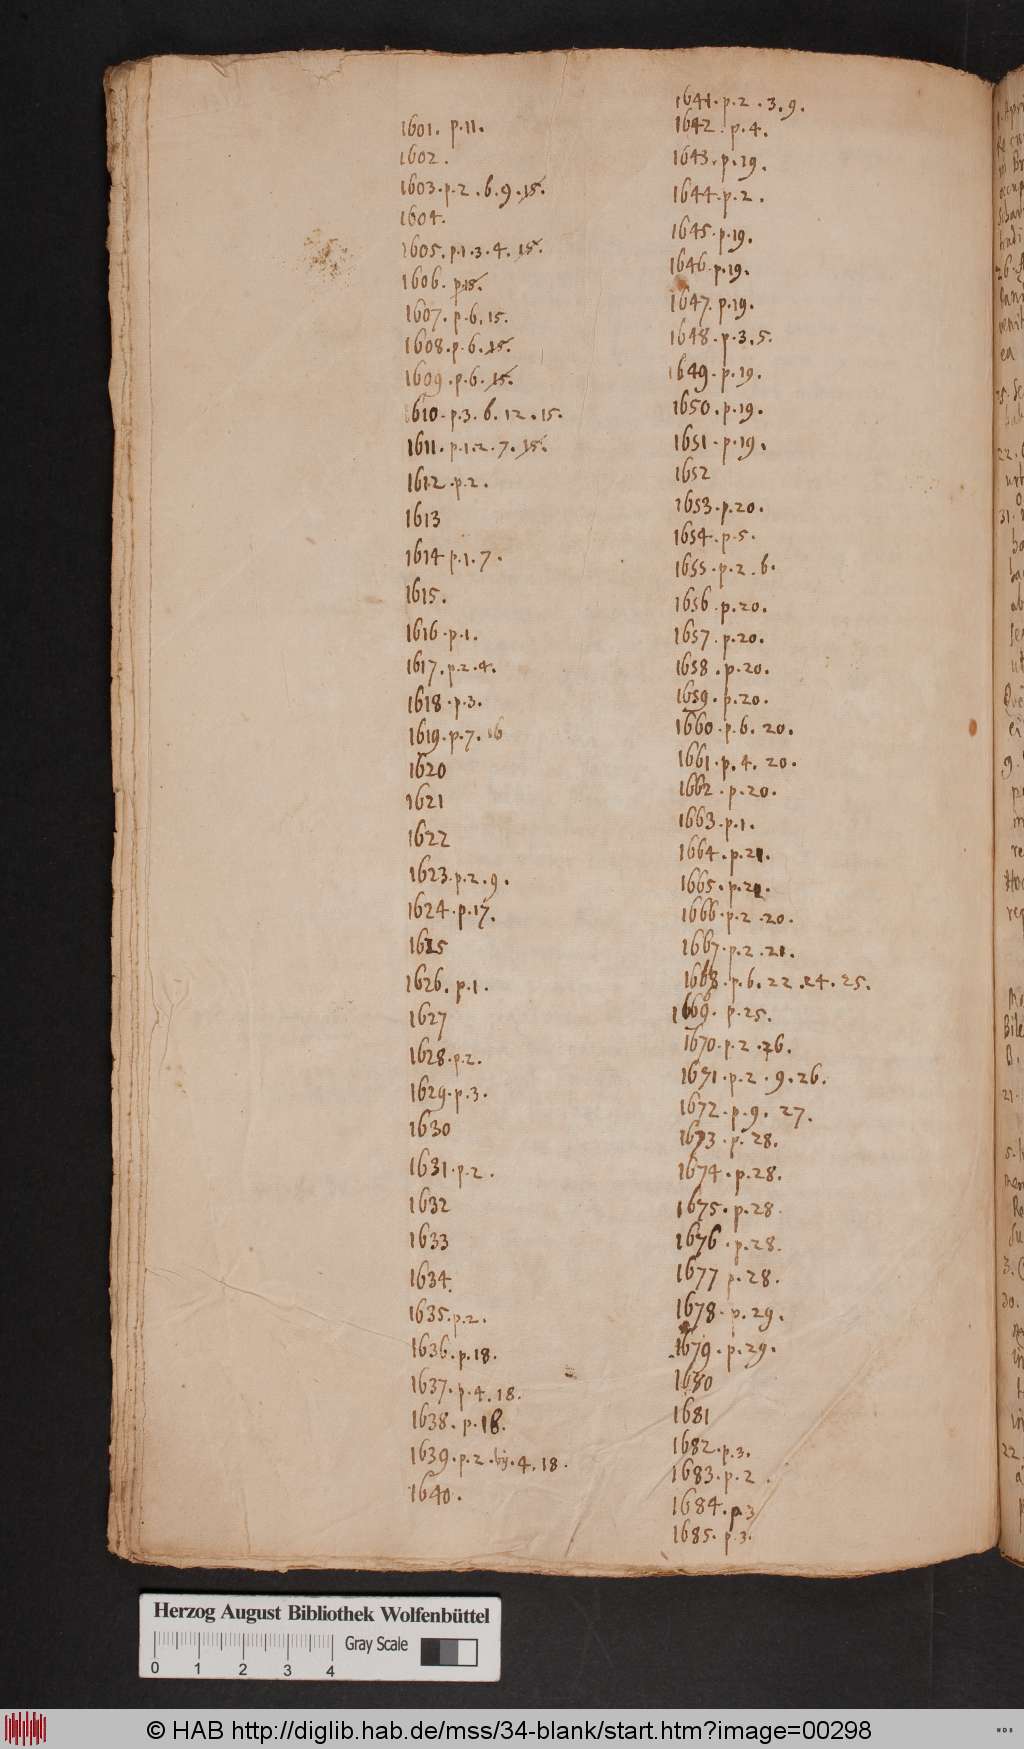 1601. p.11.
1602.
1603.p.2.6.9.15.
1604.
1605.p.1.3.4.15.
1606. p.15.
1607.p.6.15.
1608.p.6.15.
1609.p.6.15.
1610.p.3.6.12.15.
1611.p.1.2.7.15.
1612.p.2.
1613
1614 p.1.7.
1615.
1616.p.1.
1617.p.2.4.
1618.p.3.
1619.p.7.16
1620
1621
1622
1623.p.2.9.
1624.p.17.
1625
1626.p.1.
1627
1628.p.2.
1629.p.3.
1630
1631.p.2.
1632
1633
1634.
1635.p.2.
1636.p.18.
1637.p.4.18.
1638.p.18.
1639.p.2. 4.18.
1640.
1641.p.2.3.9.
1642.p.4.
1643.p.19.
1644.p.2.
1645.p.19.
1646.p.19.
1647.p.19.
1648.p.3.5.
1649.p.19.
1650.p.19.
1651.p.19.
1652
1653.p.20.
1654.p.5.
1655.p.2.6.
1656.p.20.
1657.p.20.
1658.p.20.
1659.p.20.
1660.p.6.20.
1661.p.4.20.
1662.p.20.
1663.p.1.
1664.p.21.
1665.p.21.
1666.p.2.20.
1667.p.2.21.
1668.p.6.22.24.25.
1669.p.25.
1670.p.2.26.
1671.p.2.9.26.
1672.p.9.27.
1673.p.28.
1674.p.28.
1675.p.28.
1676.p.28.
1677 p.28.
1678.p.29.
1679.p.29.
1680
1681
1682.p.3.
1683.p.2.
1684.p.3
1685.p.3.
Herzog August Bibliothek Wolfenbüttel
Gray Scale
0 1 2 3 4
© HAB http://diglib.hab.de/mss/34-blank/start.htm?image=00298